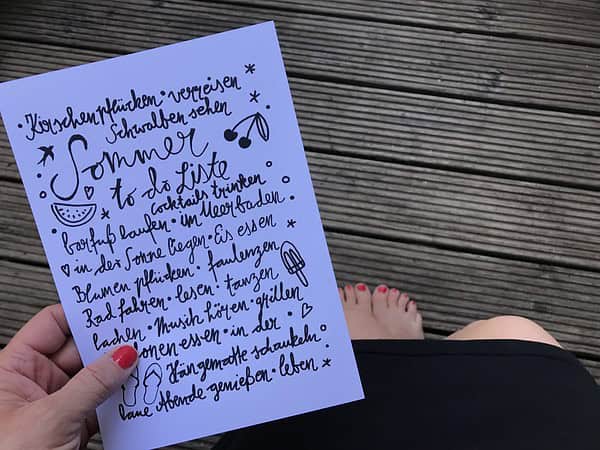 • Kirschen pflücken • verreisen
Schwalben sehen
Sommer
to do Liste
cocktails trinken
barfuß laufen • im Meer baden
in der Sonne liegen • Eis essen
Blumen pflücken • faulenzen
Rad fahren • lesen • tanzen
lachen • Musik hören • grillen
essen • in der
Hängematte schaukeln
laue Abende genießen • leben